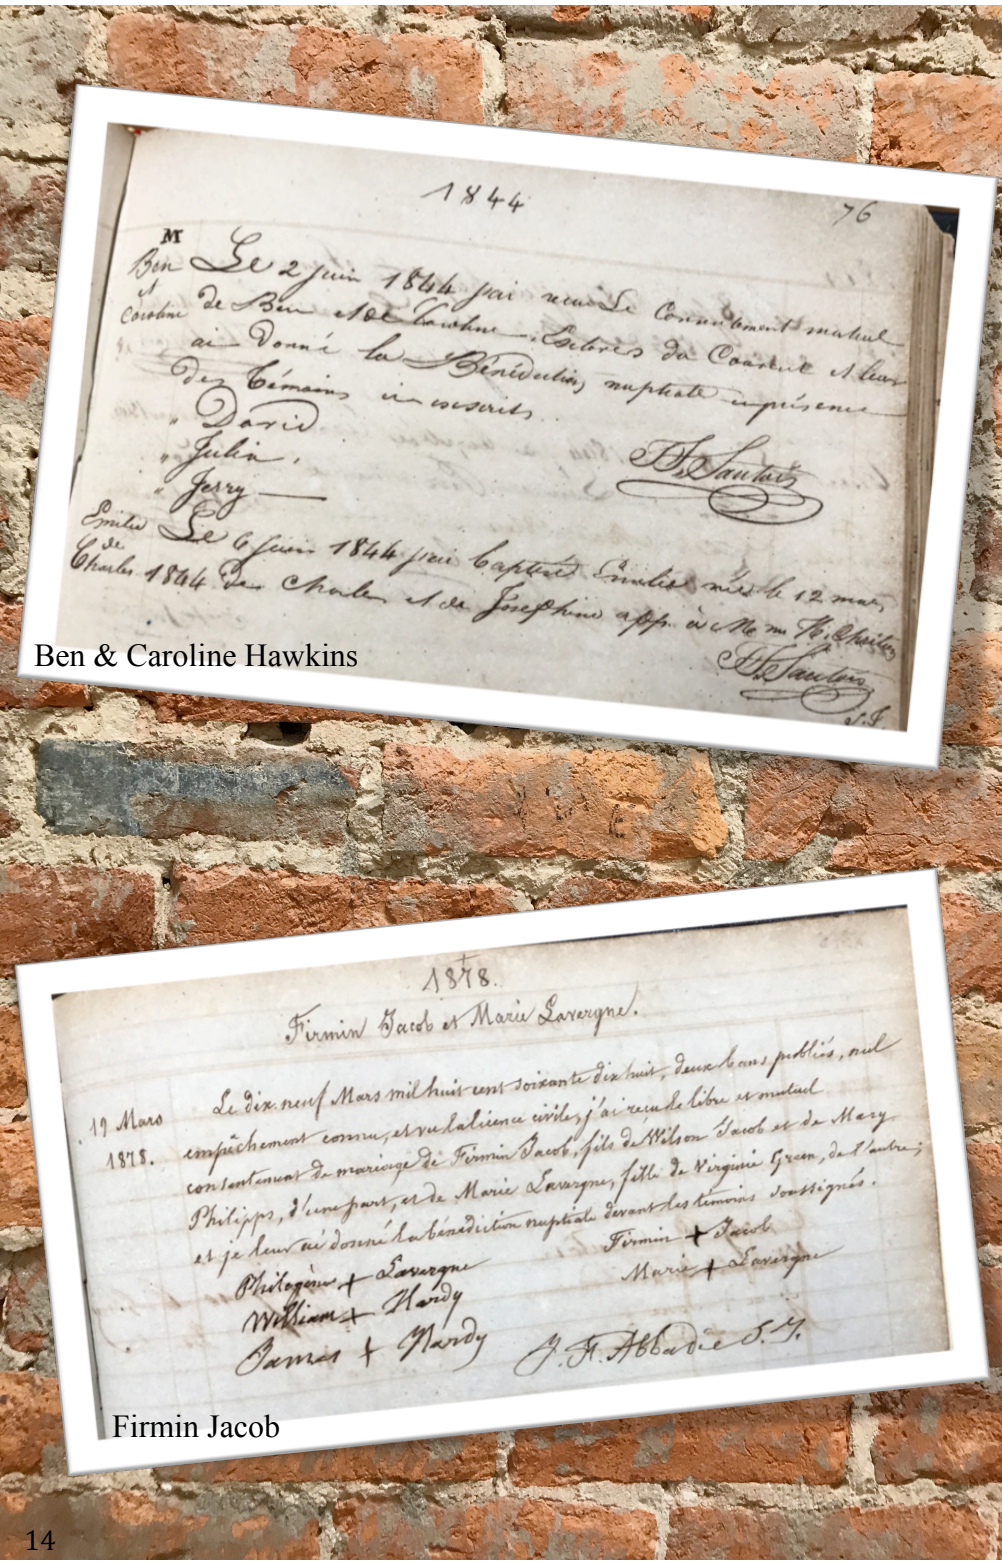 1844
76
M
Ben
et
Caroline
Le 2 juin 1844 j'ai recu Le Consentement mutuel
de Ben et de Caroline Esclaves du Couvent et leur
ai Donné la Bénédiction nuptiale en présence
des témoins
" David
" Julien
" Jerry
Emilie
de
Charles
Le 6 juin 1844 j'ai baptisé Emilie née le 12 mars
1844 de Charles et de Josephine app. à
S.J.
Ben & Caroline Hawkins
1878.
Firmin Jacob et Marie Lavergne.
19 Mars
1878.
Le dix neuf Mars mil huit cent soixante dix huit, deux bans publiés, nul
empêchement connu, et vu la licence civile, j'ai reçu le libre et mutuel
consentement de mariage de Firmin Jacob, fils de Wilson Jacob et de Mary
Philipps, d'une part, et de Marie Lavergne, fille de Virginie Green, de l'autre;
et je leur ai donné la bénédiction nuptiale devant les témoins soussignés.
Firmin + Jacob
Marie + Lavergne
Philogène + Lavergne
William + Hardy
James + Hardy
J. F. Abbadie S. J.
Firmin Jacob
14